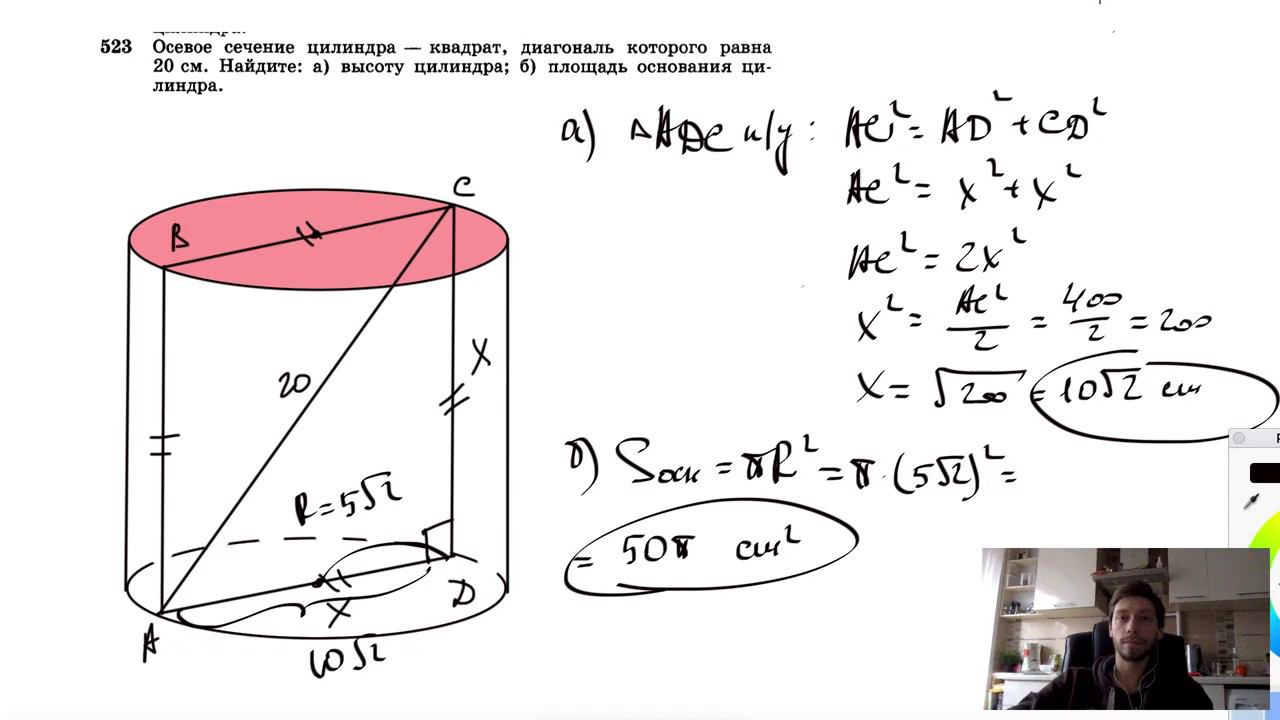 523 Осевое сечение цилиндра — квадрат, диагональ которого равна
20 см. Найдите: а) высоту цилиндра; б) площадь основания ци-
линдра.
а) △ADC п/у: AC² = AD² + CD²
AC² = x² + x²
AC² = 2x²
x² = AC²/2 = 400/2 = 200
x = √200 = 10√2 см
б) Sосн = πR² = π·(5√2)² =
= 50π см²
C
B
20
x
R=5√2
D
x
A
10√2